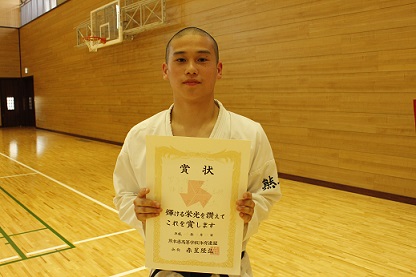 賞状
輝ける栄光を讃えて
これを賞します
平成 年 月 日
熊本県高等学校体育連盟
会長
熊